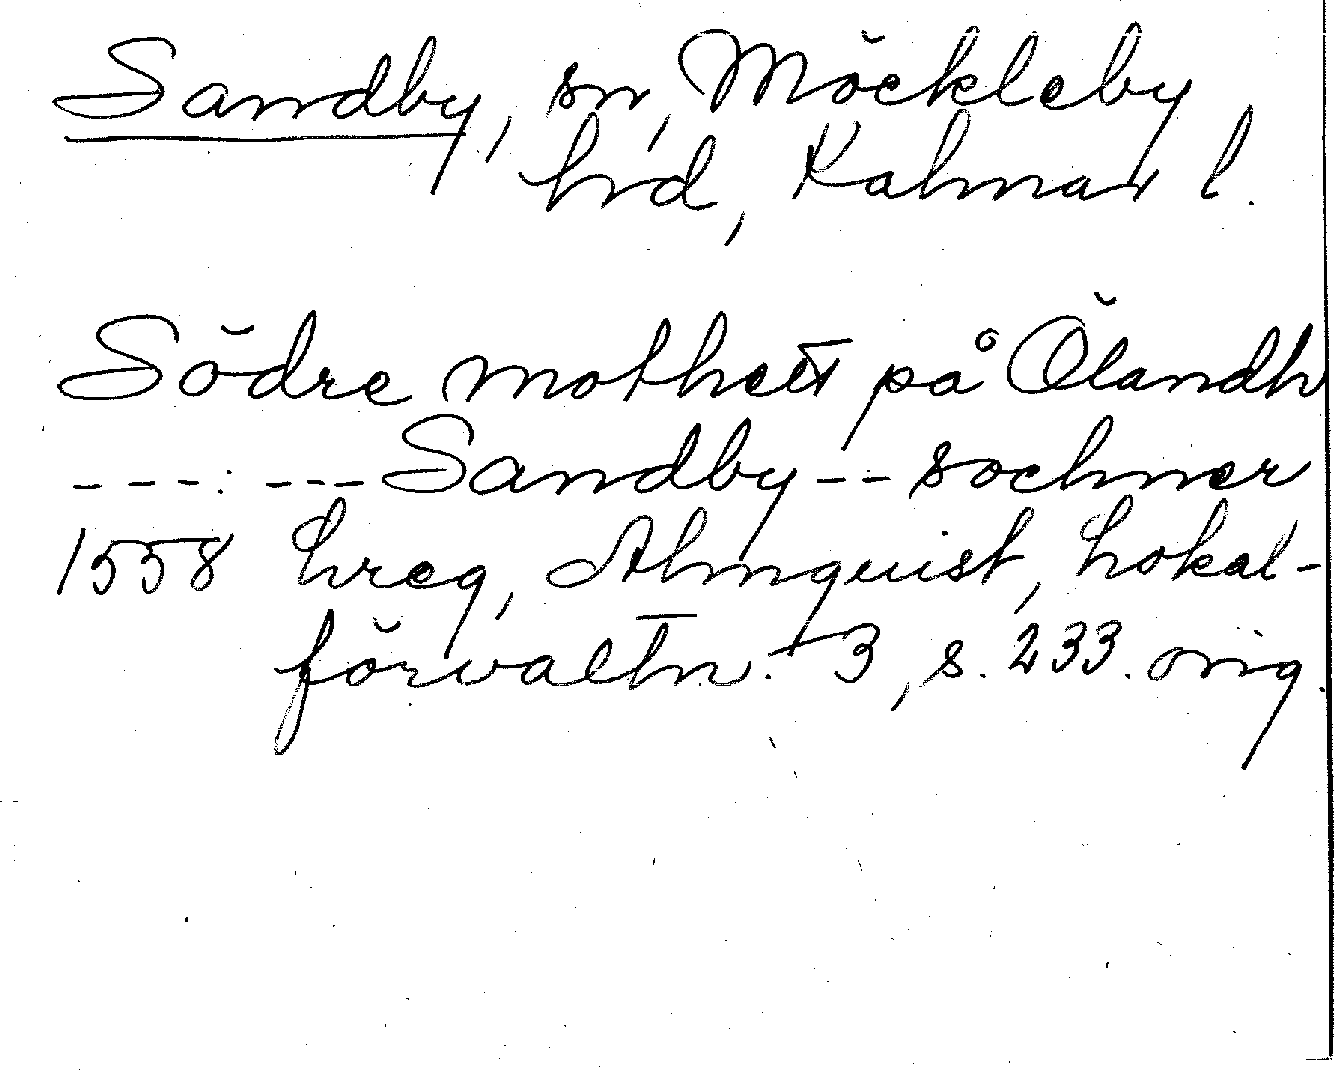 Sandby, sn, Möckleby
hrd, Kalmar l.
Södre mothett på Ölandh
---:---Sandby--sochner
1558 hreg, Almquist, Lokal-
förvaltn. 3, s. 233. orig.